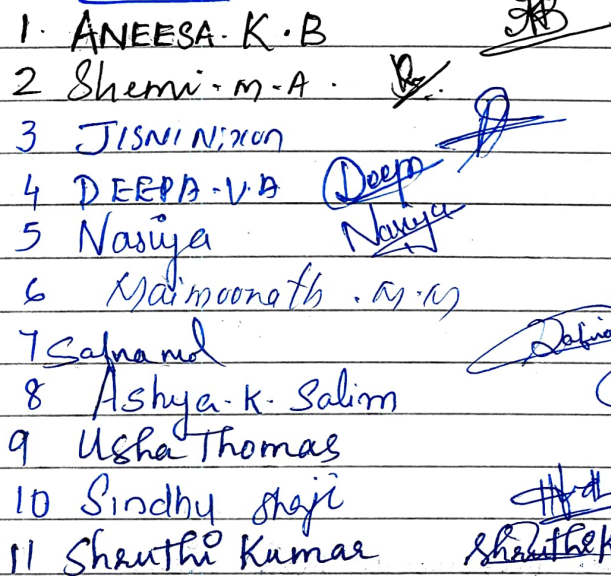 1. ANEESA. K. B
2 Shemi. M. A.
3 JISNI Nixon
4 DEEPA. V. A Deepa
5 Nasiya Nasiya
6 Maimoonath. M. M
7 Safna mol Safna
8 Ashya. K. Salim
9 Usha Thomas
10 Sindhu Shaji
11 Shruthi Kumar Shruthi K